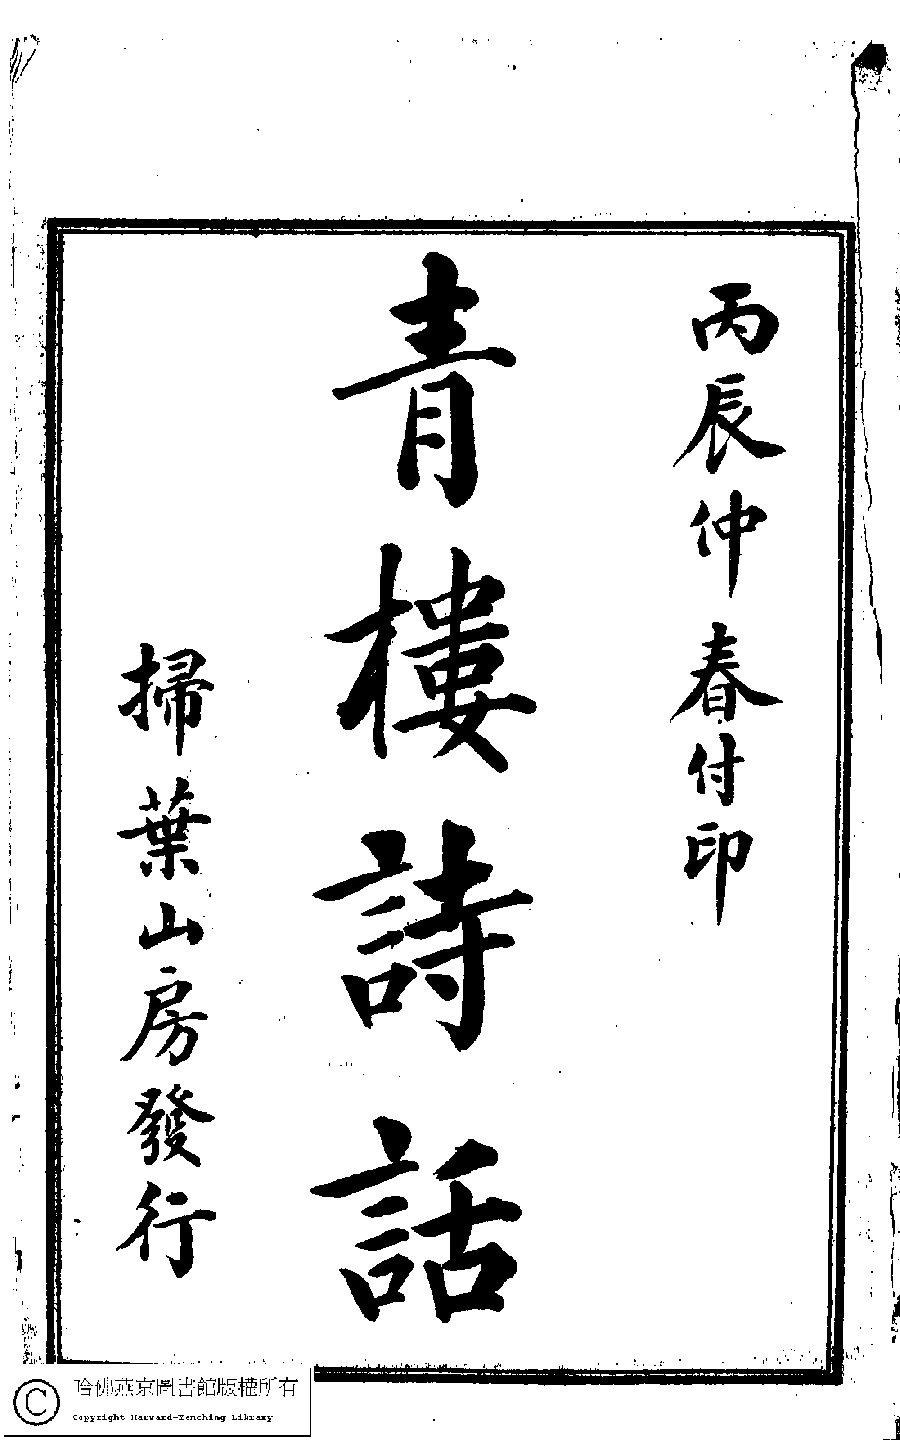 丙辰仲春付印
青樓詩話
掃葉山房發行
哈佛燕京圖書館版權所有
Copyright Harvard-Yenching Library